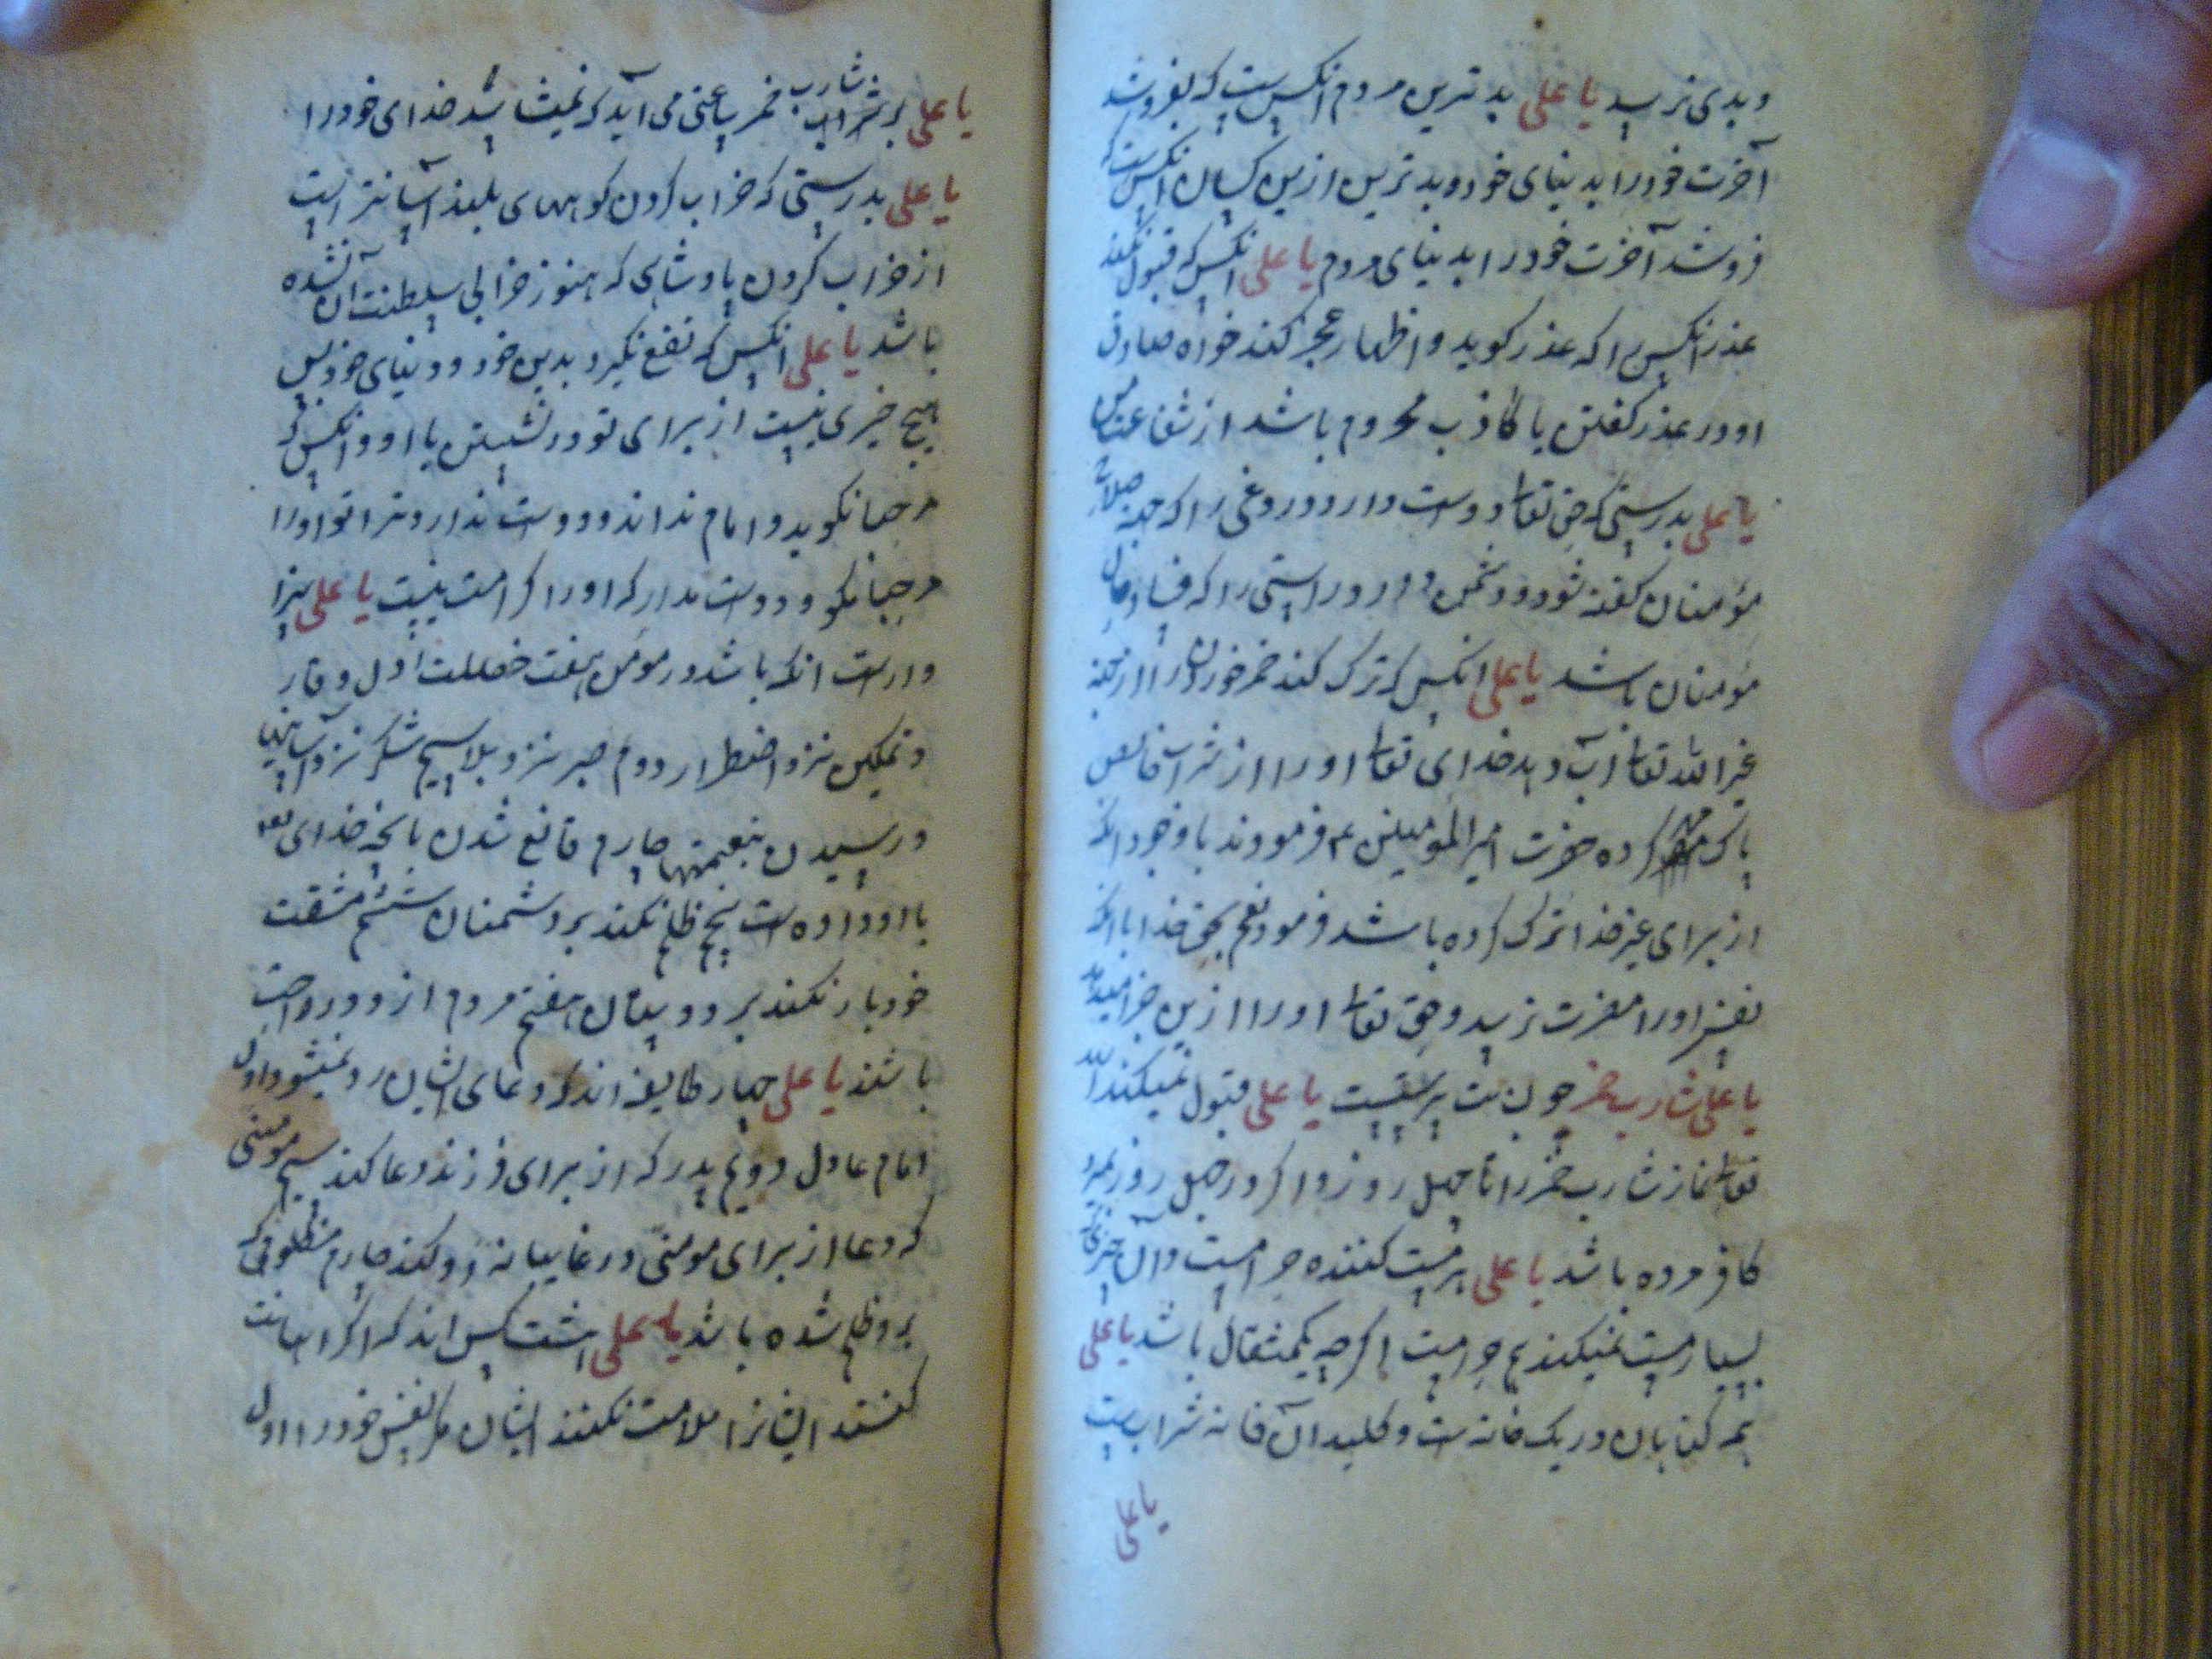 و بدی نرسد یا علی بدترین مردم انکس است که بفروشد
آخرت خود را بدنیای خود و بدترین ازین کسان انکس است که
فروشد آخرت خود را بدنیای مردم یا علی انکس که قبول نکند
عذر انکس را که عذر کوید و اظهار عجز کند خواه صادق
او در عذر کفتن یا کاذب محروم باشد از شفاعت من
یا علی بدرستی که حق تعالی دوست دارد دروغی را که جهة صلاح
مؤمنان کفته شود و دشمن دارد راستی را که فساد میان
مؤمنان باشد یا علی انکس که ترک کند خمر خوردن را از جهة
غیر الله تعالی آب دهد خدای تعالی او را از شراب خالص
پاک مهر کرده حضرت امیر المؤمنین ع فرمودند با وجود انکه
از برای غیر خدا ترک کرده باشد فرمود نعم بحق خدا با انکه
نفس او را مضرت نرسد و حق تعالی او را ازین جزا میدهد
یا علی شارب خمر چون بت پرستست یا علی قبول نمیکند الله
تعالی نماز شارب خمر را تا چهل روز و اکر در چهل روز بمیرد
کافر مرده باشد یا علی هر مست کننده حرامست و آن چیزی که
بسیار مست نمیکند هم حرامست اکر چه یکمثقال باشد یا علی
همه کناهان در یک خانه ست و کلید آن خانه شراب ست
یا علی
یا علی بر شارب خمر ساعتی می آید که نمیشناسد خدای خود را
یا علی بدرستی که خراب کردن کوههای بلند آسانتر است
از خراب کردن پادشاهی که هنوز خرابی سلطنت آن نشده
باشد یا علی انکس که نفع نکیرد بدین خود و دنیای خود پس
هیچ خیری نیست از برای تو در نشستن با او و انکس که
مرحبا نکوید و امام نداند و دوست ندارد ترا تو او را
مرحبا نکو و دوست مدار که او را کرامت نیست یا علی سزا
وارست انکه باشد در مؤمن هفت خصلت اول وقار
و تمکین نزد اضطرار دوم صبر نزد بلا سیم شکر نزد آسانیها
و رسیدن بنعمتها چارم قانع شدن بانچه خدای تعا
باو داده ست پنجم ظلم نکند بر دشمنان ششم مشقت
خود بار نکند بر دوستان هفتم مردم ازو در راحت
باشند یا علی چهار طایفه اند که دعای ایشان رد نمیشود اول
امام عادل دویم پدر که از برای فرزند دعا کند سیم مومنی
که دعا از برای مومنی در غایبانه او کند چارم مظلومی که
برو ظلم شده باشد یا علی هشت کس اند که اکر اهانت
کنند ایشانرا ملامت نکنند ایشان مکر نفس خود را اول